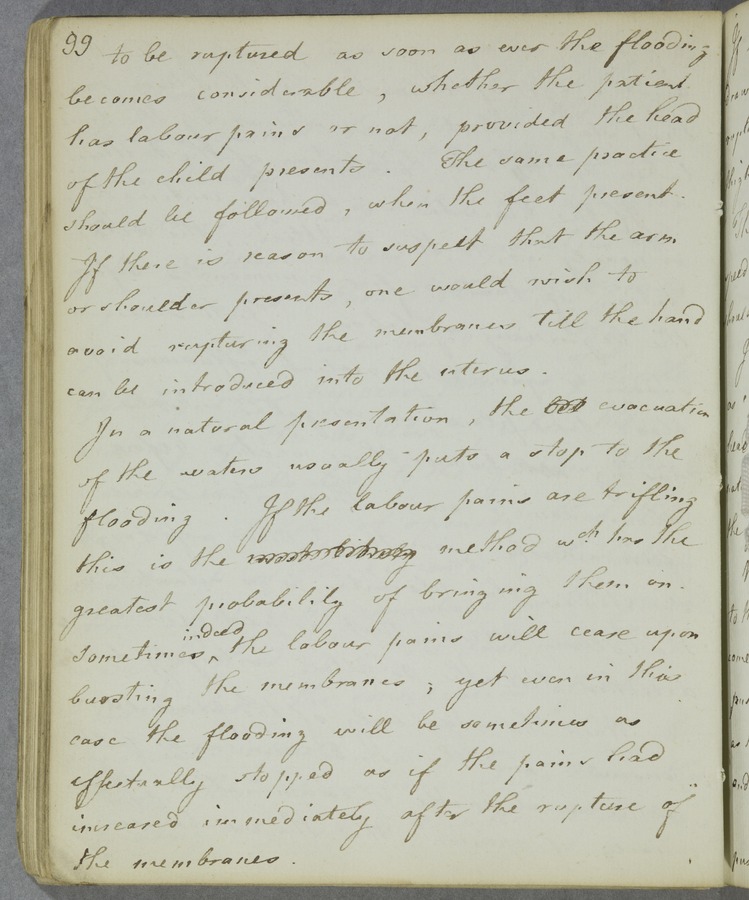 99 to be ruptured as soon as ever the flooding
becomes considerable, whether the patient
has labour pains or not, provided the head
of the child presents. The same practice
should be followed, when the feet present.
If there is reason to suspect that the arm
or shoulder presents, one would wish to
avoid rupturing the membranes till the hand
can be introduced into the uterus.
In a natural presentation, the evacuation
of the waters usually puts a stop to the
flooding. If the labour pains are trifling
this is the method wch has the
greatest probability of bringing them on.
Sometimes indeed the labour pains will cease upon
bursting the membranes; yet even in this
case the flooding will be sometimes as
effectually stopped as if the pains had
increased immediately after the rupture of
the membranes.